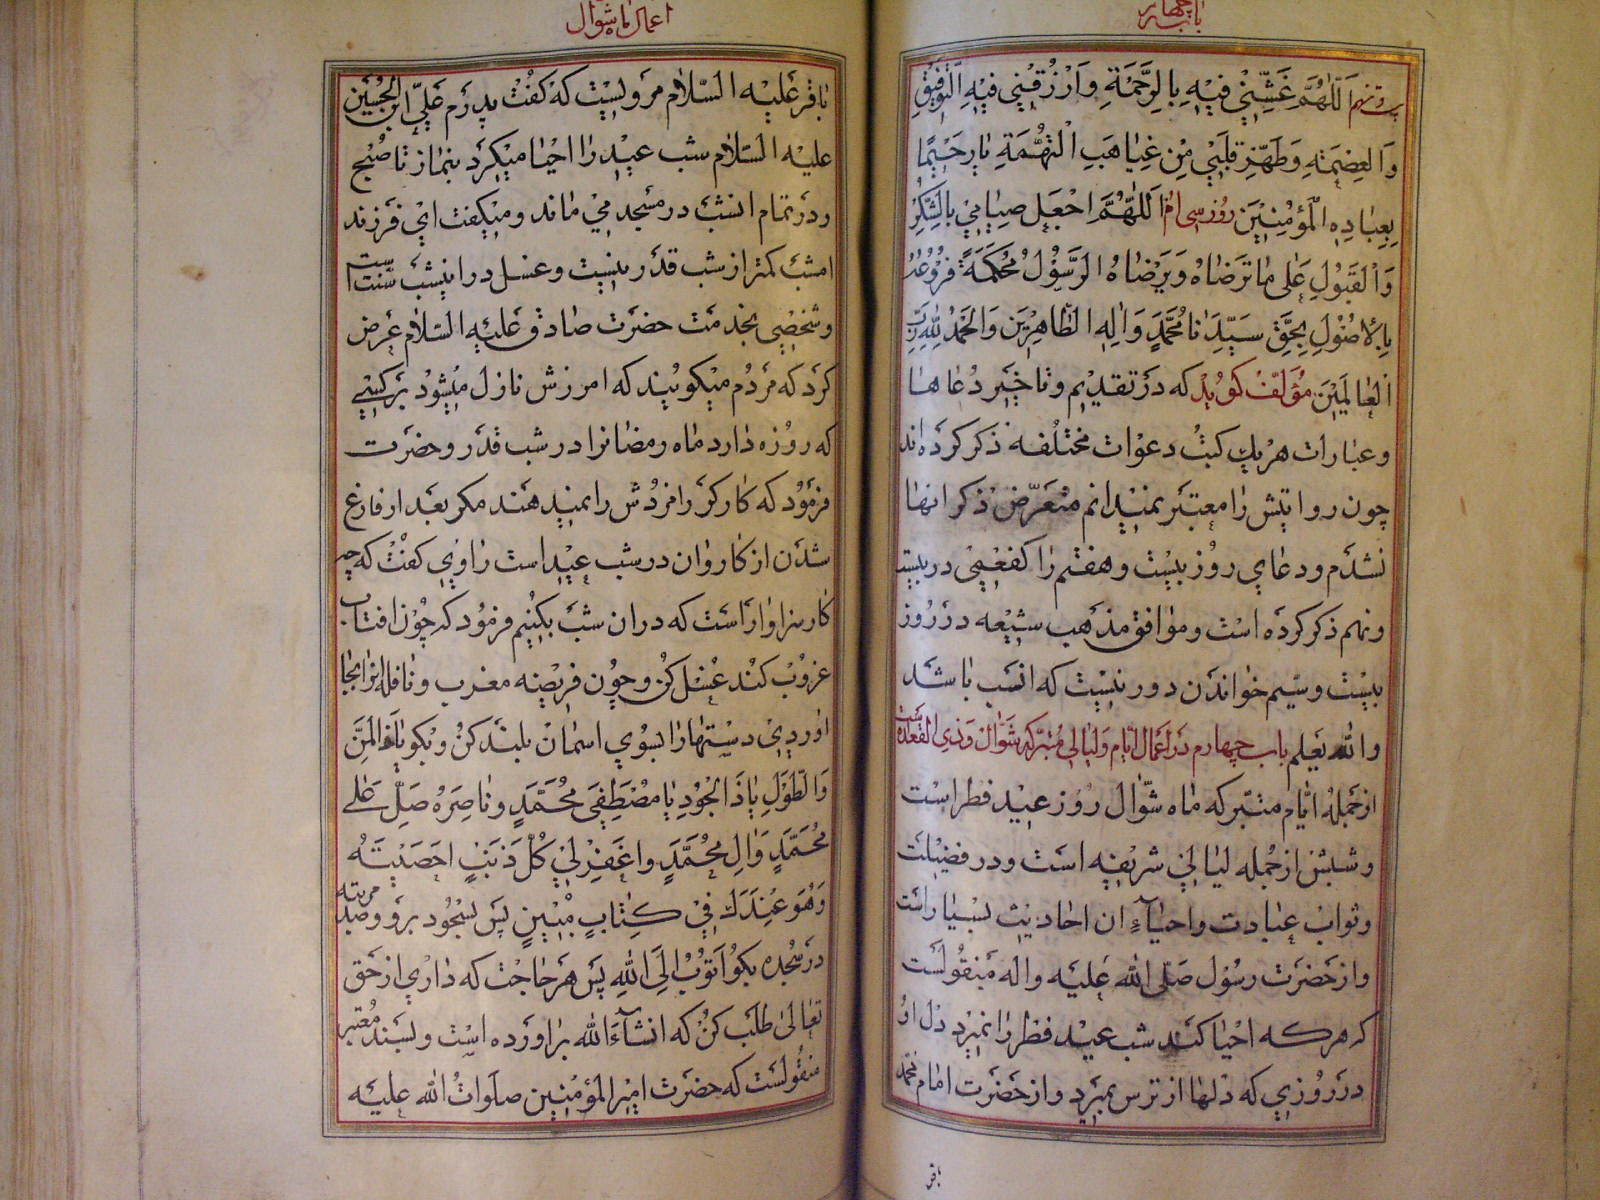 باب چهار
بیست و نهم اَللّٰهُمَّ غَشِّنِي فِيْهِ بِالرَّحْمَةِ وَارْزُقْنِي فِيْهِ التَّوْفِيْقَ
وَالْعِصْمَةَ وَطَهِّرْ قَلْبِيْ مِنْ غَيَاهِبِ التُّهْمَةِ يَا رَحِيْمًا
بِعِبَادِهِ الْمُؤْمِنِيْنَ روز سی ام اَللّٰهُمَّ اجْعَلْ صِيَامِيْ بِالشُّكْرِ
وَالْقَبُوْلِ عَلٰى مَا تَرْضَاهُ وَيَرْضَاهُ الرَّسُوْلُ مُحْكَمَةً فُرُوْعُهُ
بِالْاُصُوْلِ بِحَقِّ سَيِّدِنَا مُحَمَّدٍ وَاٰلِهِ الطَّاهِرِيْنَ وَالْحَمْدُ لِلّٰهِ رَبِّ
الْعَالَمِيْنَ مؤلف کوید که در تقدیم و تاخیر دعاها
و عبارات هر یک کتب دعوات مختلفه ذکر کرده اند
چون روایتش را معتبر نمیدانم متعرض ذکر انها
نشدم و دعای روز بیست و هفتم را کفعمی در بیست
و نهم ذکر کرده است و موافق مذهب شیعه در روز
بیست و سیم خواندن دور نیست که انسب باشد
والله یعلم باب چهارم در اعمال ایام و لیالی متبرکه شوال و ذی القعده است
از جمله ایام متبرکه ماه شوال روز عید فطر است
و شبش از جمله لیالی شریفه است و در فضیلت
و ثواب عبادت و احیاء ان احادیث بسیار است
و از حضرت رسول صلی الله علیه واله منقولست
که هر که احیا کند شب عید فطر را نمیرد دل او
در روزی که دلها از ترس بمیرد و از حضرت امام محمد
باقر
اعمال ماه شوال
باقر علیه السلام مرویست که کفت پدرم علی ابن الحسین
علیه السلام شب عید را احیا میکرد بنماز تا صبح
و در تمام انشب در مسجد می ماند و میکفت ای فرزند
امشب کمتر از شب قدر نیست و غسل در اینشب سنت است
و شخصی بخدمت حضرت صادق علیه السلام عرض
کرد که مردم میکویند که امرزش نازل میشود بر کسی
که روزه دارد ماه رمضانرا در شب قدر و حضرت
فرمود که کارکر را مزدش را نمیدهند مکر بعد از فارغ
شدن از کار و ان در شب عید است راوی کفت که چه
کار سزاوار است که در ان شب بکنیم فرمود که چون افتاب
غروب کند غسل کن و چون فریضه مغرب و نافله انرا بجا
اوردی دستها را بسوی اسمان بلند کن و بکو يَا ذَا الْمَنِّ
وَالطَّوْلِ يَا ذَا الْجُوْدِ يَا مُصْطَفِيَ مُحَمَّدٍ وَنَاصِرَهُ صَلِّ عَلٰى
مُحَمَّدٍ وَاٰلِ مُحَمَّدٍ وَاغْفِرْ لِيْ كُلَّ ذَنْبٍ اَحْصَيْتَهُ
وَهُوَ عِنْدَكَ فِيْ كِتَابٍ مُبِيْنٍ پس بسجود برو و صد مرتبه
در سجده بکو اَتُوْبُ اِلَى اللهِ پس هر حاجت که داری از حق
تعالی طلب کن که انشاءالله براورده است و بسند معتبر
منقولست که حضرت امیر المؤمنین صلوات الله علیه